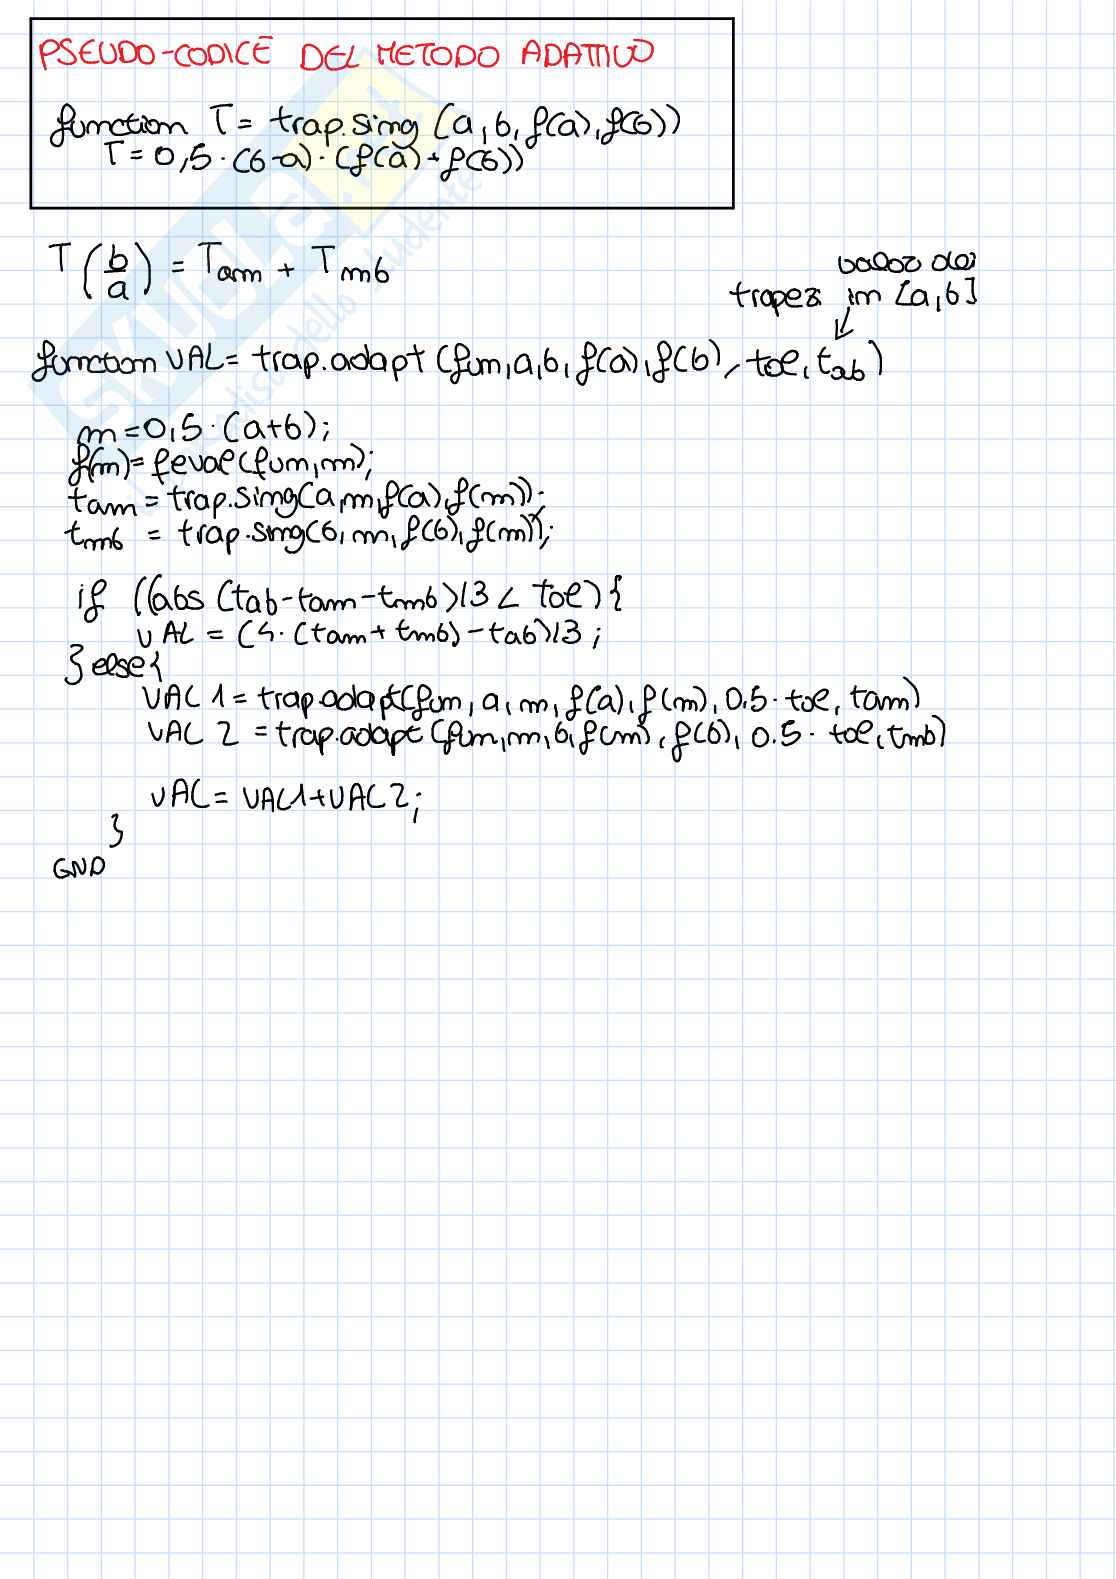 PSEUDO-CODICE DEL METODO ADATTIVO
function T = trap.sing (a, b, f(a), f(b))
T = 0,5 · (b-a) · (f(a) + f(b))
T (b/a) = Tam + Tmb
valoz dei
trapezi in [a,b]
function VAL = trap.adapt (fun, a, b, f(a), f(b), tol, tab)
m = 0,5 · (a+b);
f(m) = feval (fun, m);
tam = trap.sing(a, m, f(a), f(m));
tmb = trap.sing(b, m, f(b), f(m));
if ((abs (tab-tam-tmb)/3 < tol) {
VAL = (4 · (tam + tmb) - tab)/3 ;
} else {
VAL 1 = trap.adapt(fun, a, m, f(a), f(m), 0.5 · tol, tam)
VAL 2 = trap.adapt (fun, m, b, f(m), f(b), 0.5 · tol, tmb)
VAL = VAL1+VAL2;
}
END
SKUOLA.it
dello studente